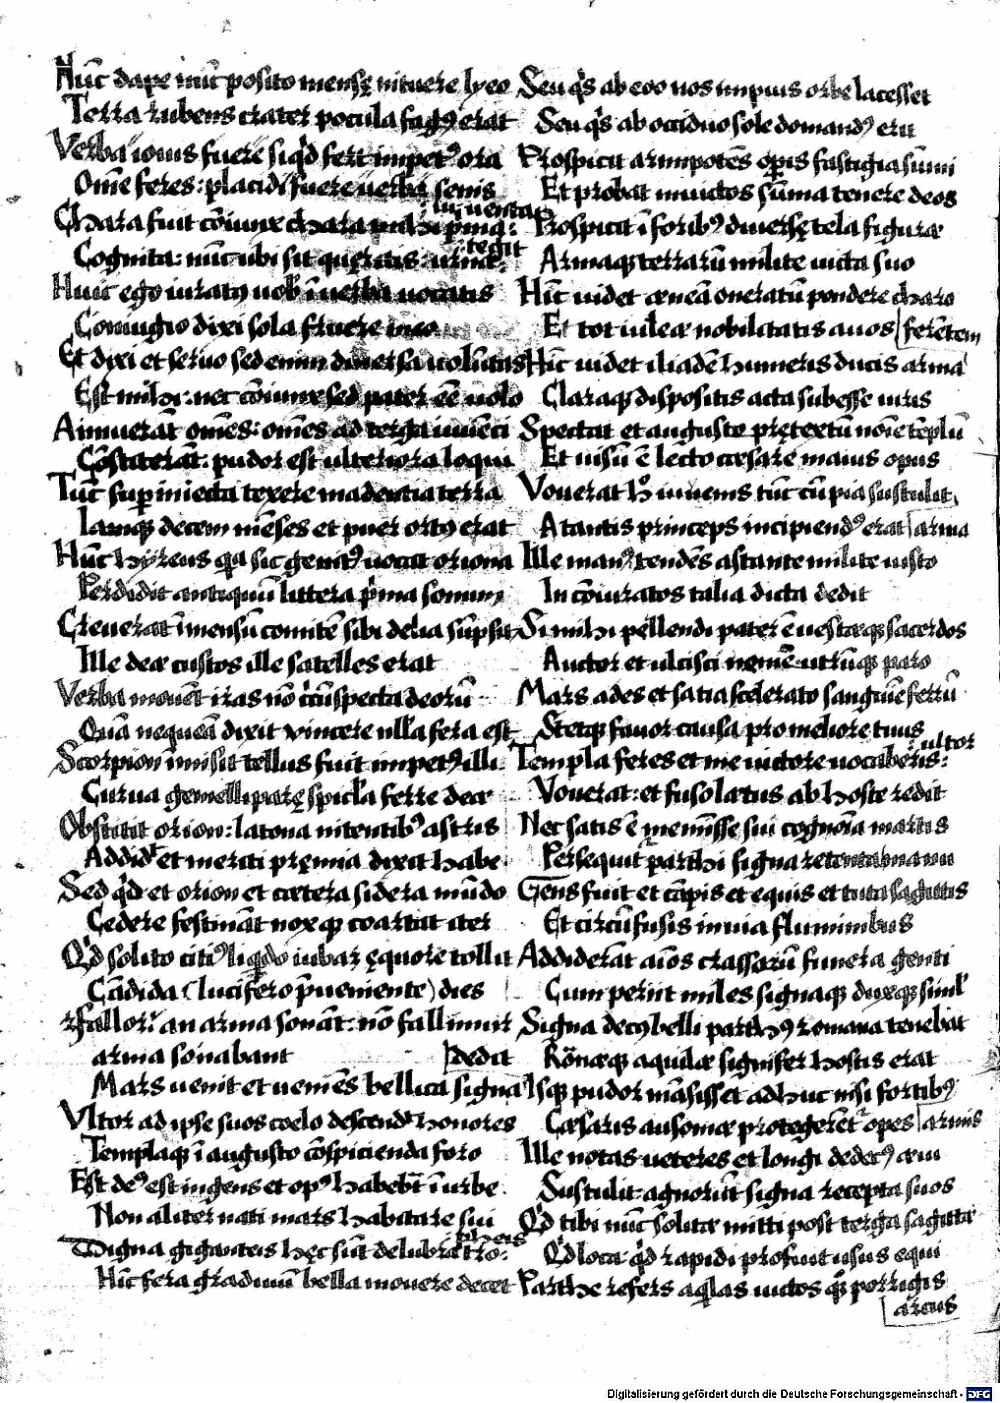 Nūc dape nūc posito mensę nituere lyeo
Terra rubens crater pocula fagꝰ erat
Verba iouis fuere siqͥd fert impetꝰ ora
Om̄e feres: placidi fuere uerba senis
Chara fuit cōiunx chara mihi pͥma: iuuentae
Cognita: nūc ubi sit quęritis: urna: tegit
Huic ego iuratꝰ uob̄ ī uerba uocatis
Coniugio dixi sola fruere meo
Et dixi et seruo sed enim diuersa uolūtas
Est mihi: nec cōiunx sed pater eē uolo
Annuerāt om̄es: om̄es ad terga iuuēci
Cōstiterāt: pudor est ulteriora loqui
Tūc suꝑ iniecta texere madentia terra
Iamqꝫ decem mēses et puer ortꝰ erat
Hūc hyreus qͣ sic genitꝰ uocat oriona
Perdidit antiquū littera pͥma sonum
Creuerat īmensū comitē sibi delia sūpsit
Ille deae custos ille satelles erat
Verba mouēt iras nō cͥcūspecta deorū
Quā nequeā dixit vincere ulla fera est
Scorpion inmisit tellus fuit impetꝰ illi
Curua gemelliparę spicla ferre deae
Obstitit orion: latona nitentibꝰ astris
Addidit et meriti pręmia dixit habe
Sed qͥd et orion et caetera sidera mūdo
Cedere festināt noxqꝫ coartat iter
Qͥd solito citiꝰ liqͥdo iubar ęquore tollit
Cādida (lucifero p̄ueniente) dies
Fallor: an arma sonāt: nō fallimur
arma sonabant
dedit
Mars uenit et ueniēs bellica signa
Vltor ad ipse suos coelo descendit honores
Templaqꝫ ī augusto cōspicienda foro
Est deꝰ est ingens et opꝰ habebāt ī urbe
Non aliter nati mars habitare sui
Digna giganteis hęc sūt delubra tro: pheis
Hīc fera gradiuū bella mouere decet
Seu qͥs ab eoo nos impius orbe lacesset
Seu qͥs ab occiduo sole domandꝰ erit
Prospicit armipotēs oꝑis fastigia sūmi
Et probat inuictos sūma tenere deos
Prospicit ī foribꝰ diuersę tela figurae
Armaqꝫ terrarū milite uicta suo
Hīc uidet aeneā oneratum pondere charo
Et tot iuleae nobilitatis auos ferētem
Hic uidet iliadē humeris ducis arma
Claraqꝫ dispositis acta subesse uiris
Spectat et augusto prętextū nōie tēplū
Et uisū ē lecto caesare maius opus
Vouerat hͦ iuuenis tūc cū pia sustulit
A tantis princeps incipiendꝰ erat arma
Ille manꝰ tendēs astante milite iusto
In cōiuratos talia dicta dedit
Si mihi pellendi pater ē uestaeqꝫ sacerdos
Auctor et ulcisci nemē utrūqꝫ paro
Mars ades et satia scelerato sanguīe ferrū
Stetqꝫ fauor causa pro meliore tuus
Templa feres et me uictore uocaberis: ultor
Vouerat: et fuso laetus ab hoste redit
Nec satis ē meruisse sui cognoīa martis
Persequitͬ parthi signa retenta manu
Gens fuit et cāpis et equis et tuta sagittis
Et circūfusis inuia fluminibus
Addiderāt aīos crassorū funera genti
Cum periit miles signaqꝫ duxqꝫ simͥl
Signa decꝰ belli parthꝰ romana tenebat
Rōnaeqꝫ aquilae signifer hostis erat
Isqꝫ pudor māsisset adhuc nisi fortibꝰ
Caesaris ausoniae protegerētͬ opes armis
Ille notas ueteres et longi dedecꝰ aeui
Sustulit: agnorūt signa recepta suos
Qͥd tibi nūc solitae mitti post terga sagittae
Qͥd loca: qͥd rapidi profuit usus equi
Parthe refers aqͥlas uictos qͦqꝫ porrigis
arcus
Digitalisierung gefördert durch die Deutsche Forschungsgemeinschaft - DFG